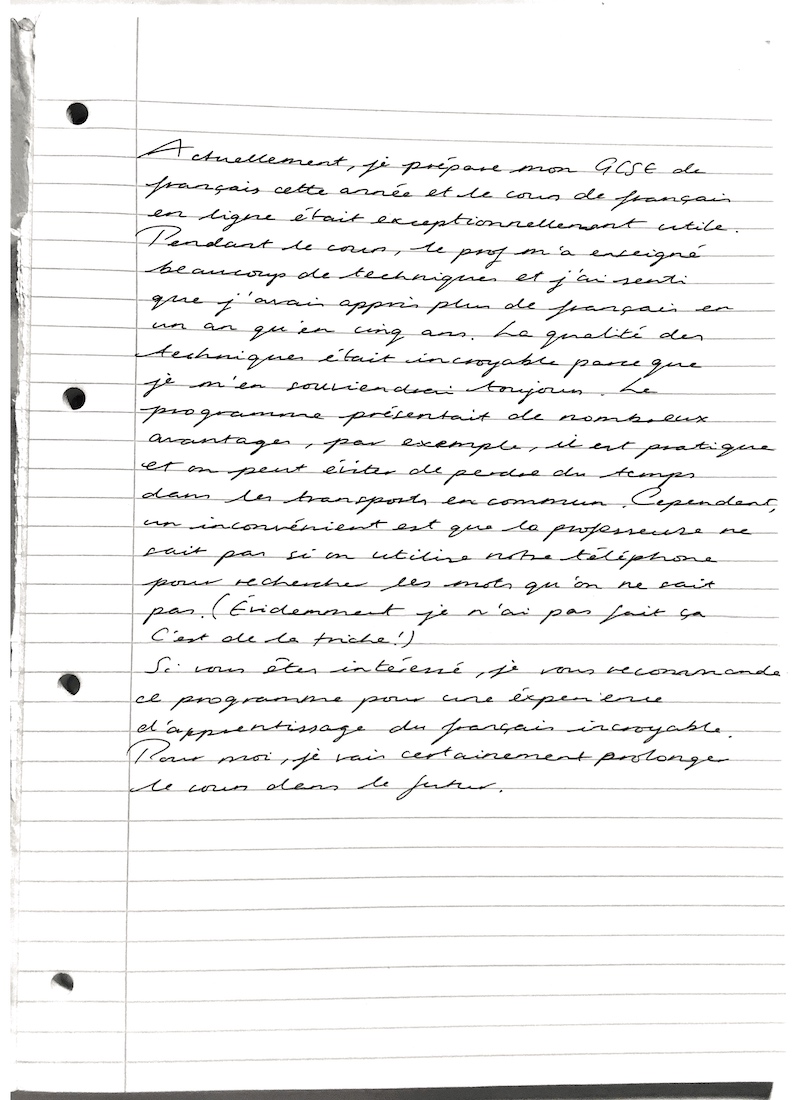 Actuellement, je prépare mon GCSE de
français cette année et le cours de français
en ligne était exceptionnellement utile.
Pendant le cours, le prof m'a enseigné
beaucoup de techniques et j'ai senti
que j'avais appris plus de français en
un an qu'en cinq ans. La qualité des
techniques était incroyable parce que
je m'en souviendrai toujours. Le
programme présentait de nombreux
avantages, par exemple, il est pratique
et on peut éviter de perdre du temps
dans les transports en commun. Cependent,
un inconvénient est que la professeuse ne
sait pas si on utilise notre téléphone
pour rechercher les mots qu'on ne sait
pas. (Évidemment je n'ai pas fait ça
C'est de la triche!)
Si vous êtes intéressé, je vous recommande
ce programme pour une éxperience
d'apprentissage du français incroyable.
Pour moi, je vais certainement prolonger
le cours dans le futur.